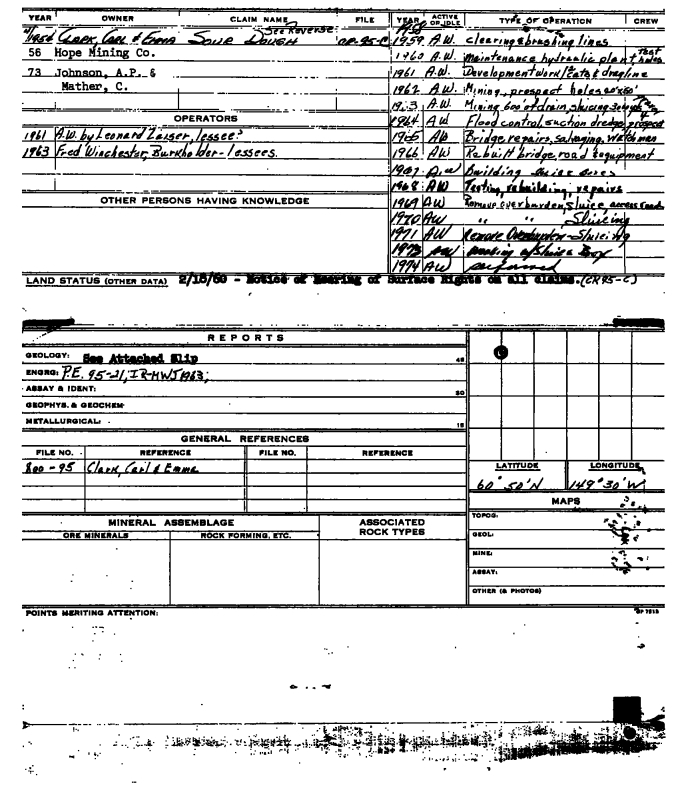 YEAR OWNER CLAIM NAME FILE YEAR ACTIVE OR IDLE TYPE OF OPERATION CREW
See Reverse
1958
Clark, Carl & Emma Sour Dough OP-95-C 1959 A.W. clearing & brushing lines
56 Hope Mining Co. 1960 A.W. maintenance hydraulic plant, test holes
73 Johnson, A.P. & 1961 A.W. Development work/Cats & dragline
Mather, C. 1962 A.W. Mining, prospect holes
A.W. Mining 600' of drain, sluicing
OPERATORS 1964 AW Flood control, suction dredge, prospect
1961 A.W. by Leonard lessee? 1965 Bridge repairs, salvaging, watchman
1963 Fred Winchester, Burkholder - lessees. 1966 AW Rebuilt bridge, road & equipment
Building
1968 AW Testing, rebuilding, repairs
OTHER PERSONS HAVING KNOWLEDGE 1969 AW Remove overburden, sluice access road
1970 AW " " Sluicing
1971 AW Remove Overburden - Sluicing
1973 of Sluice Box
1974 AW
LAND STATUS (OTHER DATA) 2/18/60 - Notice of Hearing of Surface Rights on all claims. (CX95-C)
REPORTS
GEOLOGY: See Attached Slip
ENGRG: P.E. 95-21, IR-HWJ 1963;
ASSAY & IDENT:
GEOPHYS. & GEOCHEM:
METALLURGICAL:
GENERAL REFERENCES
FILE NO. REFERENCE FILE NO. REFERENCE
800-95 Clark, Carl & Emma
LATITUDE LONGITUDE
60° 50' N 149° 30' W
MAPS
MINERAL ASSEMBLAGE ASSOCIATED ROCK TYPES
ORE MINERALS ROCK FORMING, ETC.
TOPOG:
GEOL:
MINE:
ASSAY:
OTHER (& PHOTOS)
POINTS MERITING ATTENTION: